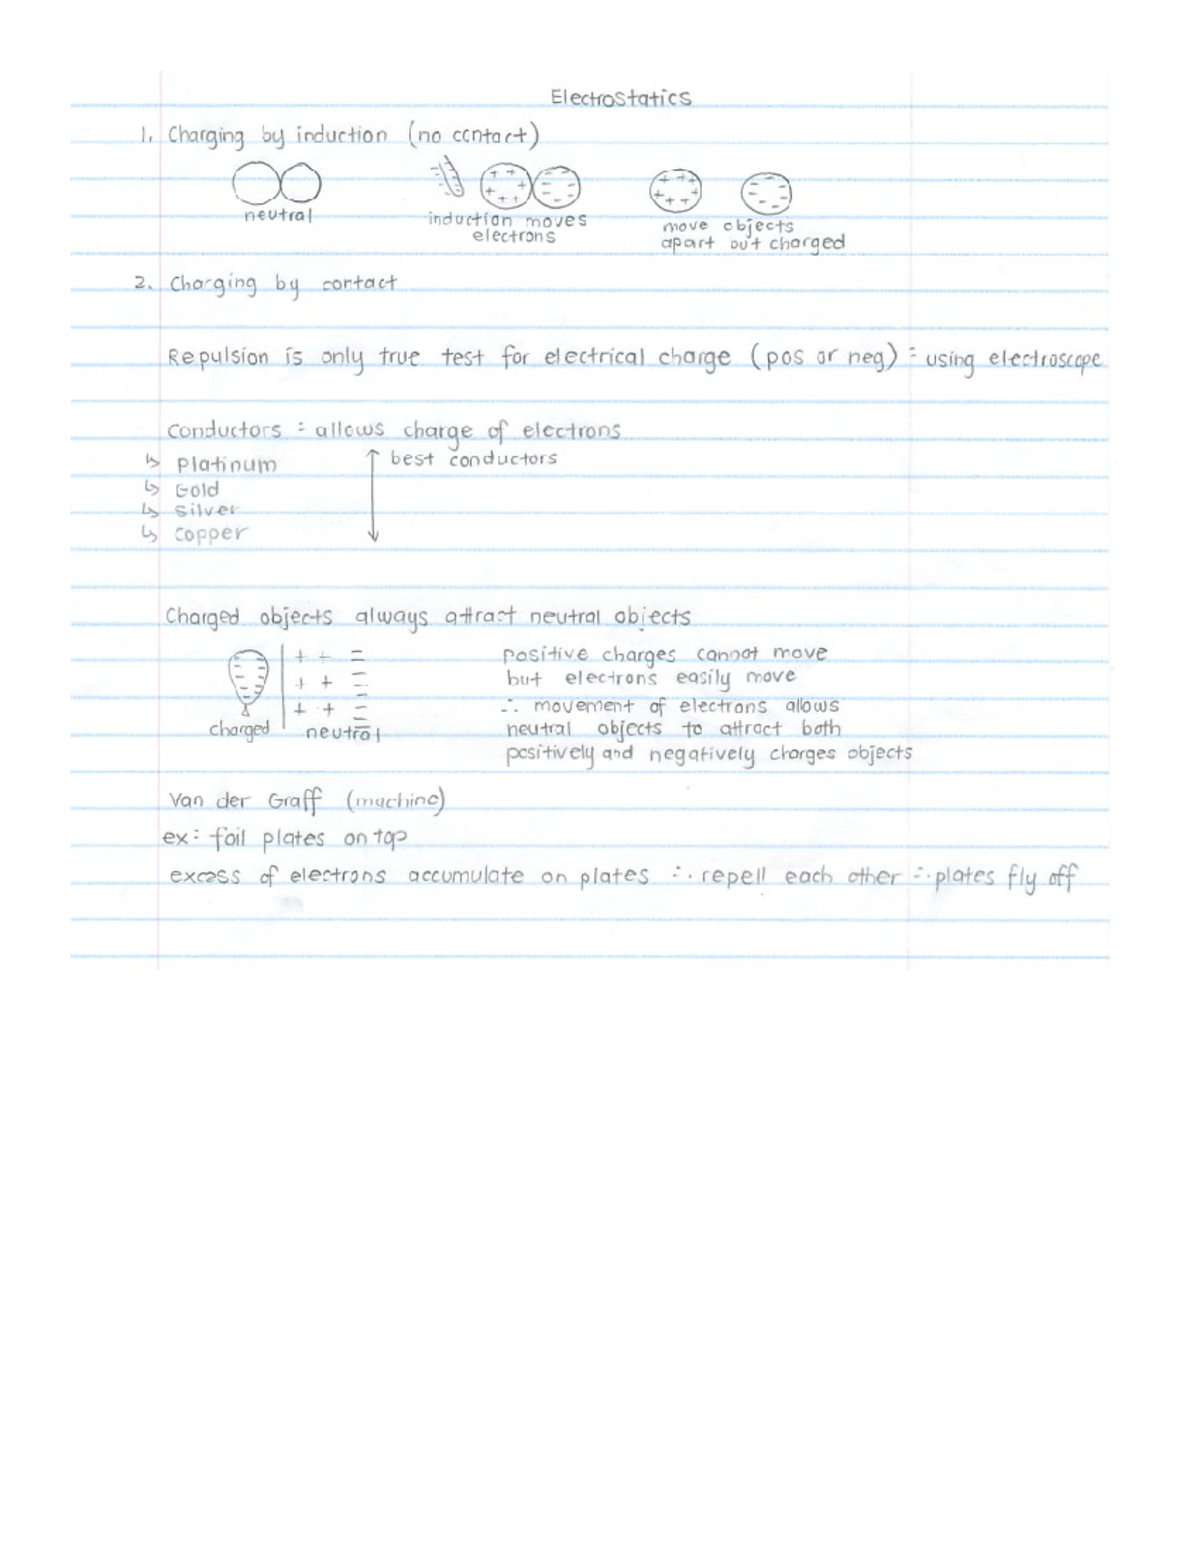 Electrostatics
1. Charging by induction (no contact)
neutral
induction moves
electrons
move objects
apart but charged
2. Charging by contact
Repulsion is only true test for electrical charge (pos or neg) = using electroscope
Conductors = allows charge of electrons
↳ Platinum
↑ best conductors
↳ Gold
↳ Silver
↳ Copper
Charged objects always attract neutral objects
charged
neutral
positive charges cannot move
but electrons easily move
∴ movement of electrons allows
neutral objects to attract both
positively and negatively charges objects
Van der Graff (machine)
ex: foil plates on top
excess of electrons accumulate on plates ∴ repell each other ∴ plates fly off